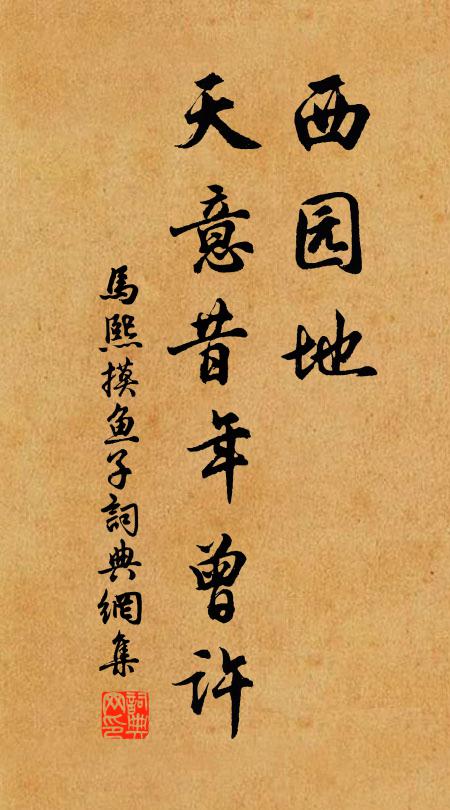 西园地
天意昔年曾许
馬熙摸鱼子詞典網集
詞典网印